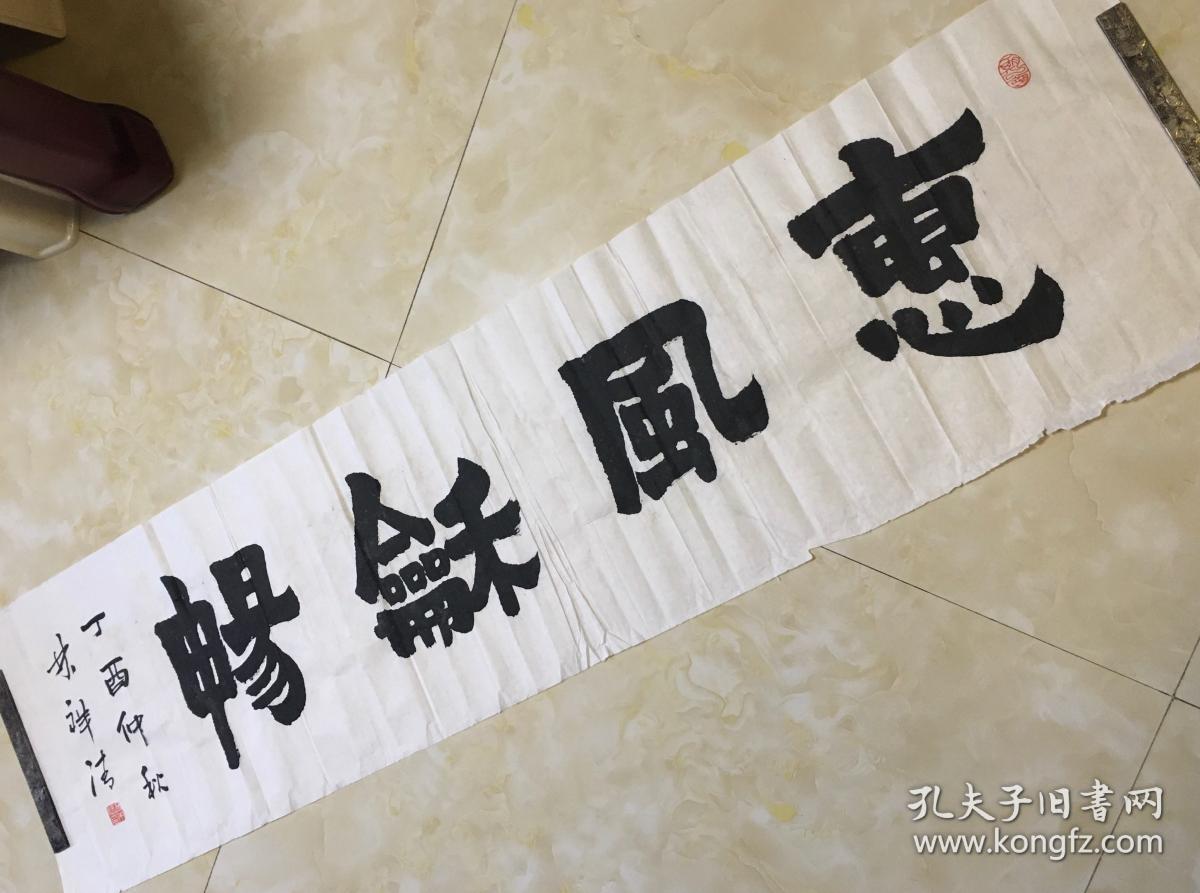 惠風龢暢
丁酉仲秋
祥清
孔夫子旧書网
www.kongfz.com